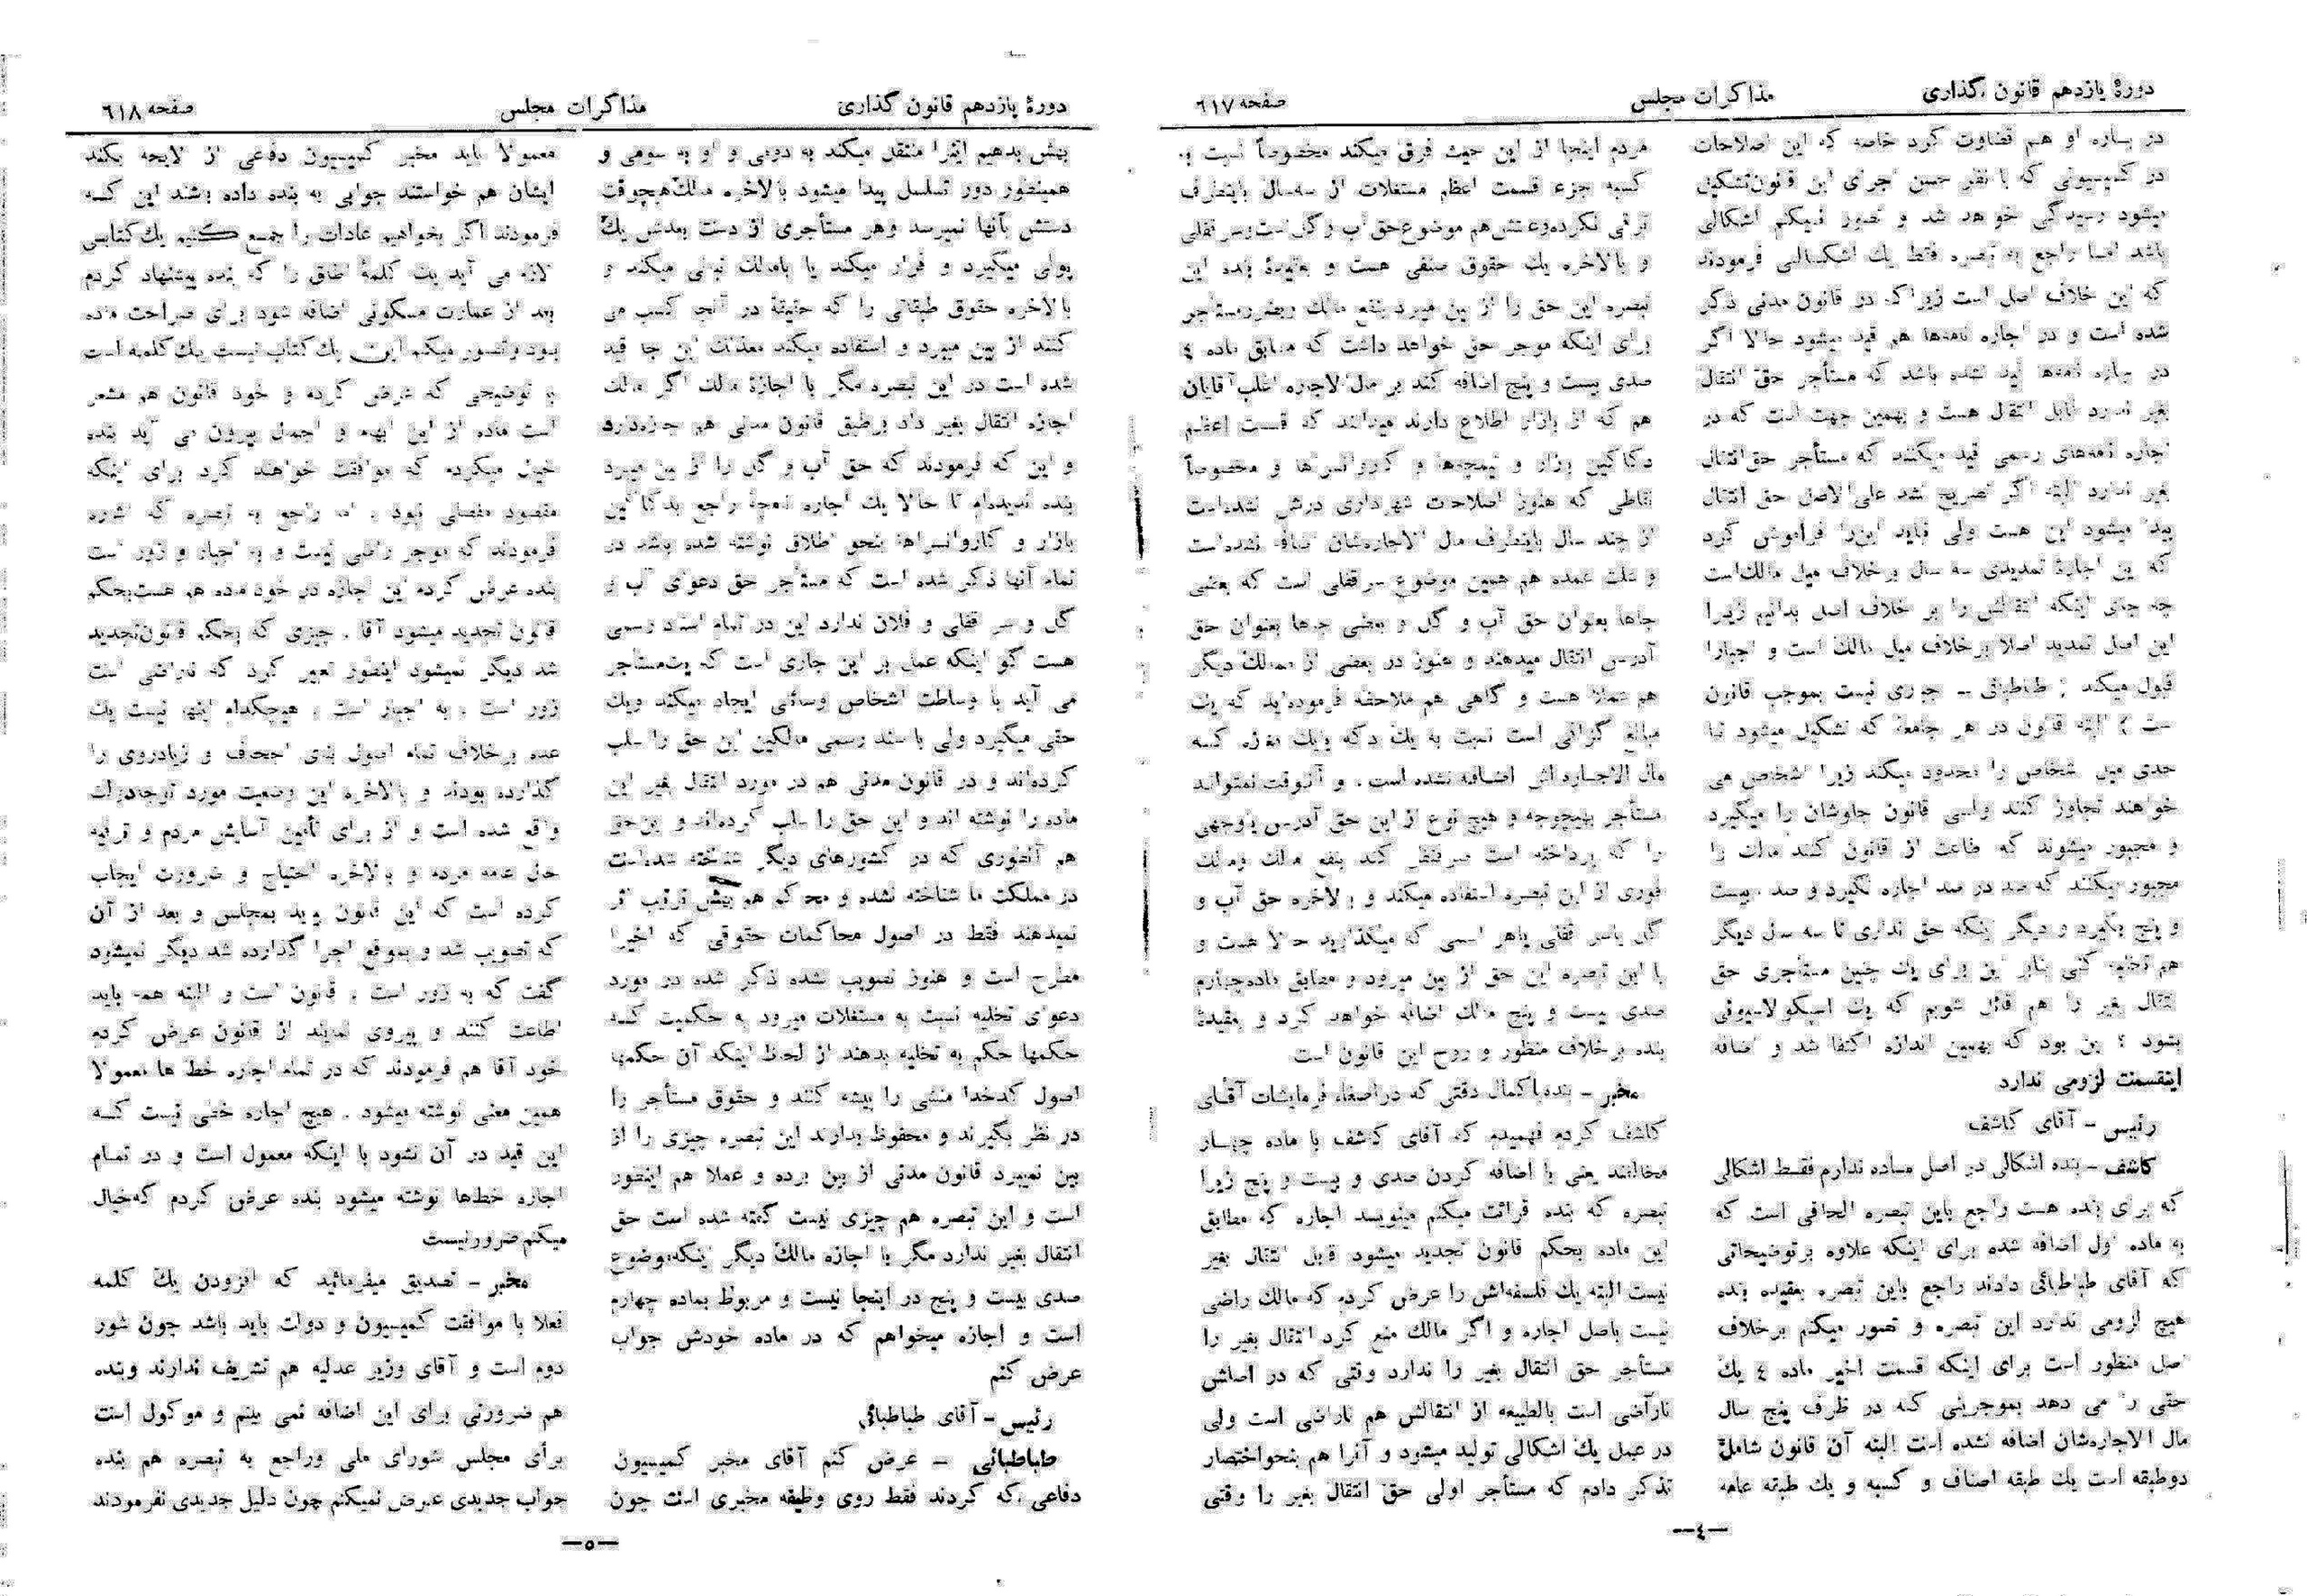 دورهٔ یازدهم قانون گذاری
مذاکرات مجلس
صفحه ٦١٧
در باره او هم قضاوت کرد خاصه که این اصلاحات
در کمیسیونی که با نظر حسن اجرای این قانون تشکیل
میشود رسیدگی خواهد شد و تصور نمیکنم اشکالی
باشد اما راجع به تبصره فقط یك اشکالی فرمودند
که این خلاف اصل است زیرا که در قانون مدنی ذکر
شده است و در اجاره نامه‌ها هم قید میشود حالا اگر
در اجاره نامه‌ها قید نشده باشد که مستأجر حق انتقال
بغیر ندارد قابل انتقال هست و بهمین جهت است که در
اجاره نامه‌های رسمی قید میکنند که مستأجر حق انتقال
بغیر ندارد البته اگر تصریح نشد علی الاصل حق انتقال
پیدا میشود این هست ولی نباید این را فراموش کرد
که این اجارهٔ تمدیدی سه سال بر خلاف میل مالك است
چه جای اینکه انتقالش را بر خلاف اصل بدانیم زیرا
این اصل تمدید اصلا برخلاف میل مالك است و اجباراً
قبول میکند ؛ طباطبائی – جبری نیست بموجب قانون
است ؛ البته قانون در هر جامعهٔ که تشکیل میشود تا
حدی میل اشخاص را محدود میکند زیرا اشخاص می
خواهند تجاوز کنند ولی قانون جلوشان را میگیرد
و مجبور میشوند که اطاعت از قانون کنند مالك را
مجبور میکنند که صد در صد اجاره نگیرد و صد ، بیست
و پنج بگیرد و دیگر اینکه حق نداری تا سه سال دیگر
هم تخلیه کنی بنابر این برای یك چنین مستأجری حق
انتقال بغیر را هم قائل شویم که یك اسپکولاسیونی
بشود ؛ این بود که بهمین اندازه اکتفا شد و اضافه
اینقسمت لزومی ندارد
رئیس – آقای کاشف
کاشف – بنده اشکالی در اصل ماده ندارم فقط اشکالی
که برای بنده هست راجع باین تبصره الحاقی است که
به ماده اول اضافه شده برای اینکه علاوه بر توضیحاتی
که آقای طباطبائی دادند راجع باین تبصره بعقیده بنده
هیچ لزومی ندارد این تبصره و تصور میکنم برخلاف
اصل منظور است برای اینکه قسمت اخیر ماده ٤ یك
حقی را می دهد بموجرینی که در ظرف پنج سال
مال الاجاره‌شان اضافه نشده است البته آن قانون شامل
دوطبقه است یك طبقه اصناف و کسبه و یك طبقه عامه
مردم اینجا از این حیث فرق میکند مخصوصاً نسبت به
کسبه جزء قسمت اعظم مستغلات از سه‌سال باینطرف
ترقی نکرده و علتش هم موضوع حق آب و گل است و سرقفلی
و بالاخره یك حقوق صنفی هست و بعقیدهٔ بنده این
تبصره این حق را از بین میبرد بنفع مالك و بضرر مستأجر
برای اینکه موجر حق خواهد داشت که مطابق ماده ٤
صدی بیست و پنج اضافه کند بر مال الاجاره اغلب آقایان
هم که از بازار اطلاع دارند میدانند که قسمت اعظم
دکاکین بازار و تیمچه‌ها و کاروانسراها و مخصوصاً
نقاطی که هنوز اصلاحات شهرداری درش نشده‌است
از چند سال باینطرف مال الاجاره‌شان اضافه نشده‌است
و علت عمده هم همین موضوع سرقفلی است که بعضی
جاها بعنوان حق آب و گل و بعضی جاها بعنوان حق
آدرس انتقال میدهند و هنوز در بعضی از ممالك دیگر
هم عملا هست و گاهی هم ملاحظه فرموده‌اید که یك
مبالغ گزافی است نسبت به یك دکه و یك مغازه کسه
مال الاجاره‌اش اضافه نشده است . و آنوقت نمیتواند
مستأجر بهیچوجه و هیچ نوع از این حق آدرس یا وجهی
را که پرداخته است صرفنظر کند بنفع مالك و مالك
فوری از این تبصره استفاده میکند و بالاخره حق آب و
گل یا سر قفلی یا هر اسمی که میگذارید حالا هست و
با این تبصره این حق از بین میرود و مطابق ماده چهارم
صدی بیست و پنج مالك اضافه خواهد کرد و بعقیدهٔ
بنده برخلاف منظور و روح این قانون است
مخبر – بنده با کمال دقتی که در اصغاء فرمایشات آقای
کاشف کردم فهمیدم که آقای کاشف با ماده چهار
مخالفند یعنی با اضافه کردن صدی و بیست و پنج زیرا
تبصره که بنده قرائت میکنم مینویسد اجاره که مطابق
این ماده بحکم قانون تجدید میشود قابل انتقال بغیر
نیست البته یك فلسفه‌اش را عرض کردم که مالك راضی
نیست باصل اجاره و اگر مالك منع کرد انتقال بغیر را
مستأجر حق انتقال بغیر را ندارد وقتی که در اصلش
ناراضی است بالطبیعه از انتقالش هم ناراضی است ولی
در عمل یك اشکالی تولید میشود و آنرا هم بنحو اختصار
تذکر دادم که مستأجر اولی حق انتقال بغیر را وقتی
—٤—
دورهٔ یازدهم قانون گذاری
مذاکرات مجلس
صفحه ٦١٨
بهش بدهیم اینرا منتقل میکند به دومی و او به سومی و
همینطور دور تسلسل پیدا میشود بالاخره مالك هیچوقت
دستش بآنها نمیرسد و هر مستأجری از دست بعدش یك
پولی میگیرد و فرار میکند یا با مالك تبانی میکند و
بالاخره حقوق طبقاتی را که حقیقة در آنجا کسب می
کنند از بین میبرد و استفاده میکند معذلك این جا قید
شده است در این تبصره مگر با اجازهٔ مالك اگر مالك
اجازه انتقال بغیر داد برطبق قانون مدنی هم اجازه دارد
و این که فرمودند که حق آب و گل را از بین میبرد
بنده ندیده‌ام تا حالا یك اجاره نامچهٔ راجع بدکاکین
بازار و کاروانسراها بنحو اطلاق نوشته شده باشد در
تمام آنها ذکر شده است که مستأجر حق دعوای آب و
گل و سر قفلی و فلان ندارد این در تمام اسناد رسمی
هست گو اینکه عمل بر این جاری است که یك مستأجر
می آید با وساطت اشخاص وسائلی ایجاد میکند و یك
حقی میگیرد ولی با سند رسمی مالکین این حق را سلب
کرده‌اند و در قانون مدنی هم در مورد انتقال بغیر این
ماده را نوشته اند و این حق را سلب کرده‌اند و این حق
هم آنطوری که در کشورهای دیگر شناخته شده‌است
در مملکت ما شناخته نشده و محاکم هم بهش ترتیب اثر
نمیدهند فقط در اصول محاکمات حقوقی که اخیراً
مطرح است و هنوز تصویب نشده ذکر شده در مورد
دعوای تخلیه نسبت به مستغلات میرود به حکمیت کسه
حکمها حکم به تخلیه بدهند از لحاظ اینکه آن حکمها
اصول کدخدا منشی را پیشه کنند و حقوق مستأجر را
در نظر بگیرند و محفوظ بدارند این تبصره چیزی را از
بین نمیبرد قانون مدنی از بین برده و عملا هم اینطور
است و این تبصره هم چیزی نیست گفته شده است حق
انتقال بغیر ندارد مگر با اجازه مالك دیگر اینکه موضوع
صدی بیست و پنج در اینجا نیست و مربوط بماده چهارم
است و اجازه میخواهم که در ماده خودش جواب
عرض کنم
رئیس – آقای طباطبائی
طباطبائی – عرض کنم آقای مخبر کمیسیون
دفاعی که کردند فقط روی وظیفه مخبری است چون
معمولا باید مخبر کمیسیون دفاعی از لایحه بکند
ایشان هم خواستند جوابی به بنده داده باشند این کسه
فرمودند اگر بخواهیم عادات را جمع کنیم یك کتابش
لانه می آید یك کلمهٔ اطاق را که بنده پیشنهاد کردم
بعد از عمارت مسکونی اضافه شود برای صراحت ماده
بود و تصور میکنم این یك کتاب نیست یك کلمه است
با توضیحی که عرض کردم و خود قانون هم مشعر
است ماده از این ابهام و اجمال بیرون می آید بنده
خیال میکردم که موافقت خواهند کرد برای اینکه
مقصود مفصلی نبود ، اما راجع به تبصره که اشاره
فرمودند که موجر راضی نیست و به اجبار و زور است
بنده عرض کردم این اجازه در خود ماده هم هست بحکم
قانون تجدید میشود آقا ، چیزی که بحکم قانون تجدید
شد دیگر نمیشود اینطور تعبیر کرد که ناراضی است
زور است ، به اجبار است ، هیچکدام اینها نیست یك
عده برخلاف تمام اصول بنای اجحاف و زیاده‌روی را
گذارده بودند و بالاخره این وضعیت مورد توجه دولت
واقع شده است و از برای تأمین آسایش مردم و ترفیه
حال عامه مردم و بالاخره احتیاج و ضرورت ایجاب
کرده است که این قانون بیاید بمجلس و بعد از آن
که تصویب شد و بموقع اجرا گذارده شد دیگر نمیشود
گفت که به زور است ، قانون است و البته همه باید
اطاعت کنند و پیروی نمایند از قانون عرض کردم
خود آقا هم فرمودند که در تمام اجاره خط ها معمولا
همین معنی نوشته میشود . هیچ اجاره خطی نیست کسه
این قید در آن نشود با اینکه معمول است و در تمام
اجاره خط‌ها نوشته میشود بنده عرض کردم که خیال
میکنم ضرور نیست
مخبر – تصدیق میفرمائید که افزودن یك کلمه
فعلا با موافقت کمیسیون و دولت باید باشد چون شور
دوم است و آقای وزیر عدلیه هم تشریف ندارند و بنده
هم ضرورتی برای این اضافه نمی بینم و موکول است
برأی مجلس شورای ملی و راجع به تبصره هم بنده
جواب جدیدی عرض نمیکنم چون دلیل جدیدی نفرمودند
—٥—